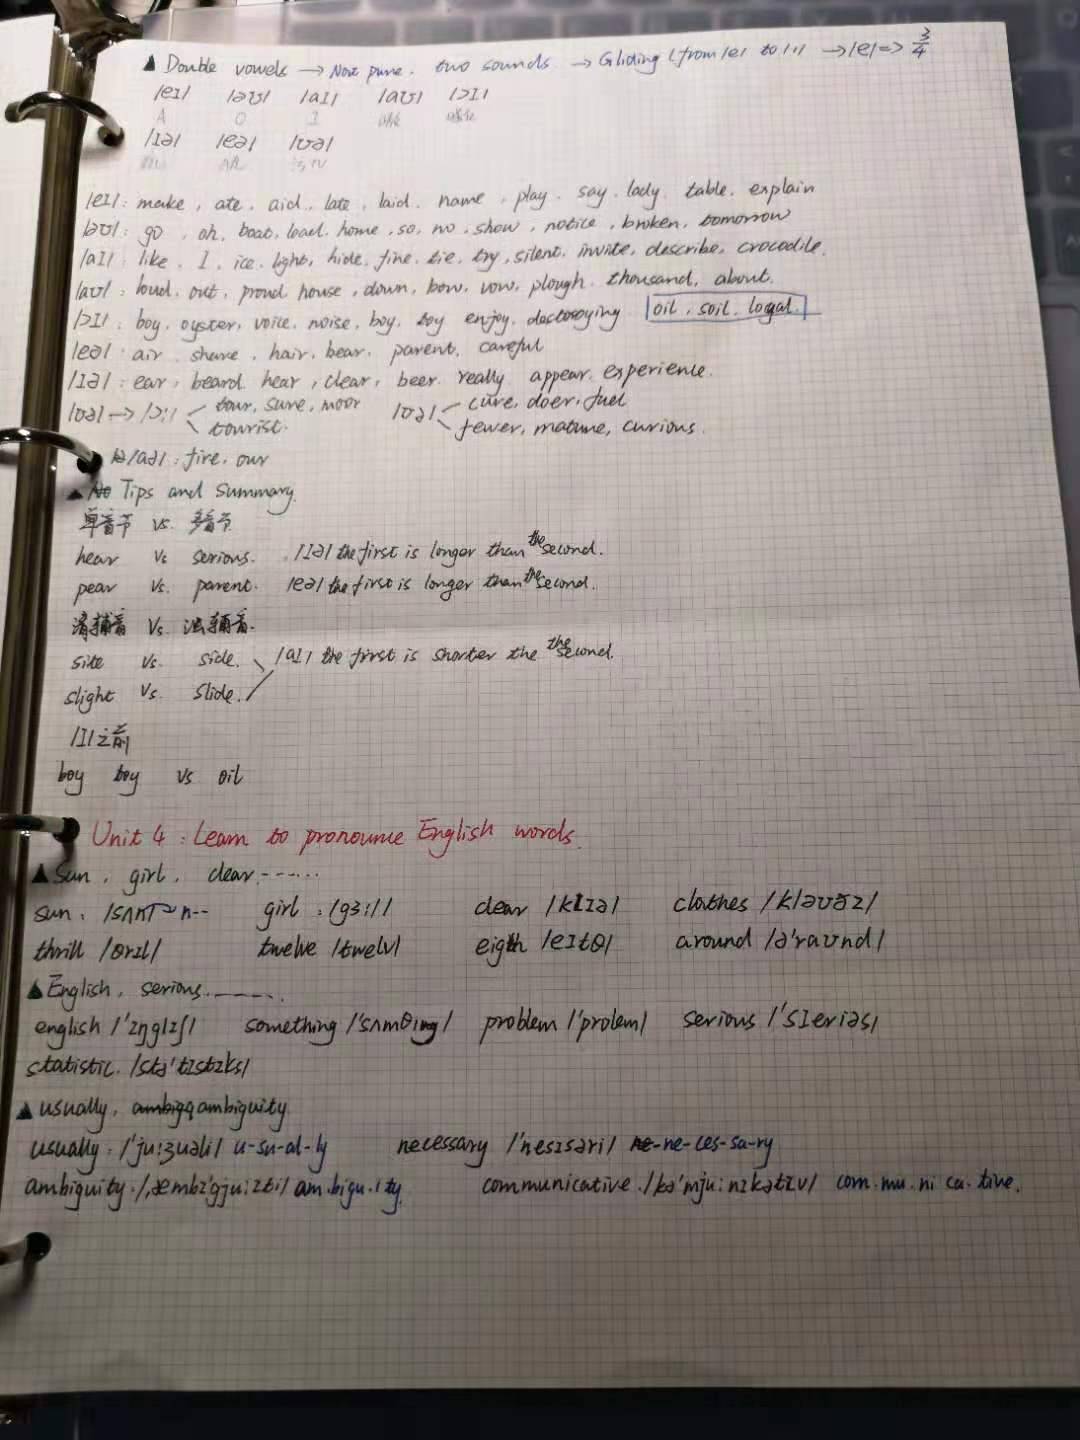 ▲ Double vowels → Not pure. two sounds → Gliding (from /e/ to /ɪ/) → /e/ => 3/4
/eɪ/ /əʊ/ /aɪ/ /aʊ/ /ɔɪ/
A O I
/ɪə/ /eə/ /ʊə/
/eɪ/: make, ate, aid, late, laid, name, play, say, lady, table, explain
/əʊ/: go, oh, boat, load, home, so, no, show, notice, broken, tomorrow
/aɪ/: like, I, ice, light, hide, fine, tie, try, silent, invite, describe, crocodile.
/aʊ/: loud, out, proud house, down, bow, vow, plough, thousand, about.
/ɔɪ/: boy, oyster, voice, noise, boy, toy enjoy, oil, soil, logal.
/eə/: air, share, hair, bear, parent, careful
/ɪə/: ear, beard, hear, clear, beer, really appear, experience.
/ʊə/ → /ɔ:/ tour, sure, moor /ʊə/ cure, doer, fuel
tourist. fewer, mature, curious.
/aə/: fire, our
▲ Tips and Summary.
单音节 vs. 多音节
hear vs serious. /ɪə/ the first is longer than the second.
pear vs. parent. /eə/ the first is longer than the second.
清辅音 vs. 浊辅音.
site vs. side. /aɪ/ the first is shorter the the second.
slight vs. slide.
/ɪ/之前
boy toy vs oil
Unit 4: Learn to pronounce English words.
▲ Sun, girl, clear ------
sun: /sʌn/ n-- girl: /gɜ:l/ clear /klɪə/ clothes /kləʊðz/
thrill /θrɪl/ twelve /twelv/ eigth /eɪtθ/ around /ə'raʊnd/
▲ English, serious -------
english /'ɪŋglɪʃ/ something /'sʌmθɪŋ/ problem /'prolem/ serious /'sɪeriəs/
statistic. /stə'tɪstɪks/
▲ usually, ambiguity
usually: /'ju:ʒuəli/ u-su-al-ly necessary /'nesɪsəri/ ne-ces-sa-ry
ambiguity. /,æmbɪ'gju:ɪti/ am.bigu.ity. communicative. /kə'mju:nɪkətɪv/ com.mu.ni ca.tive.